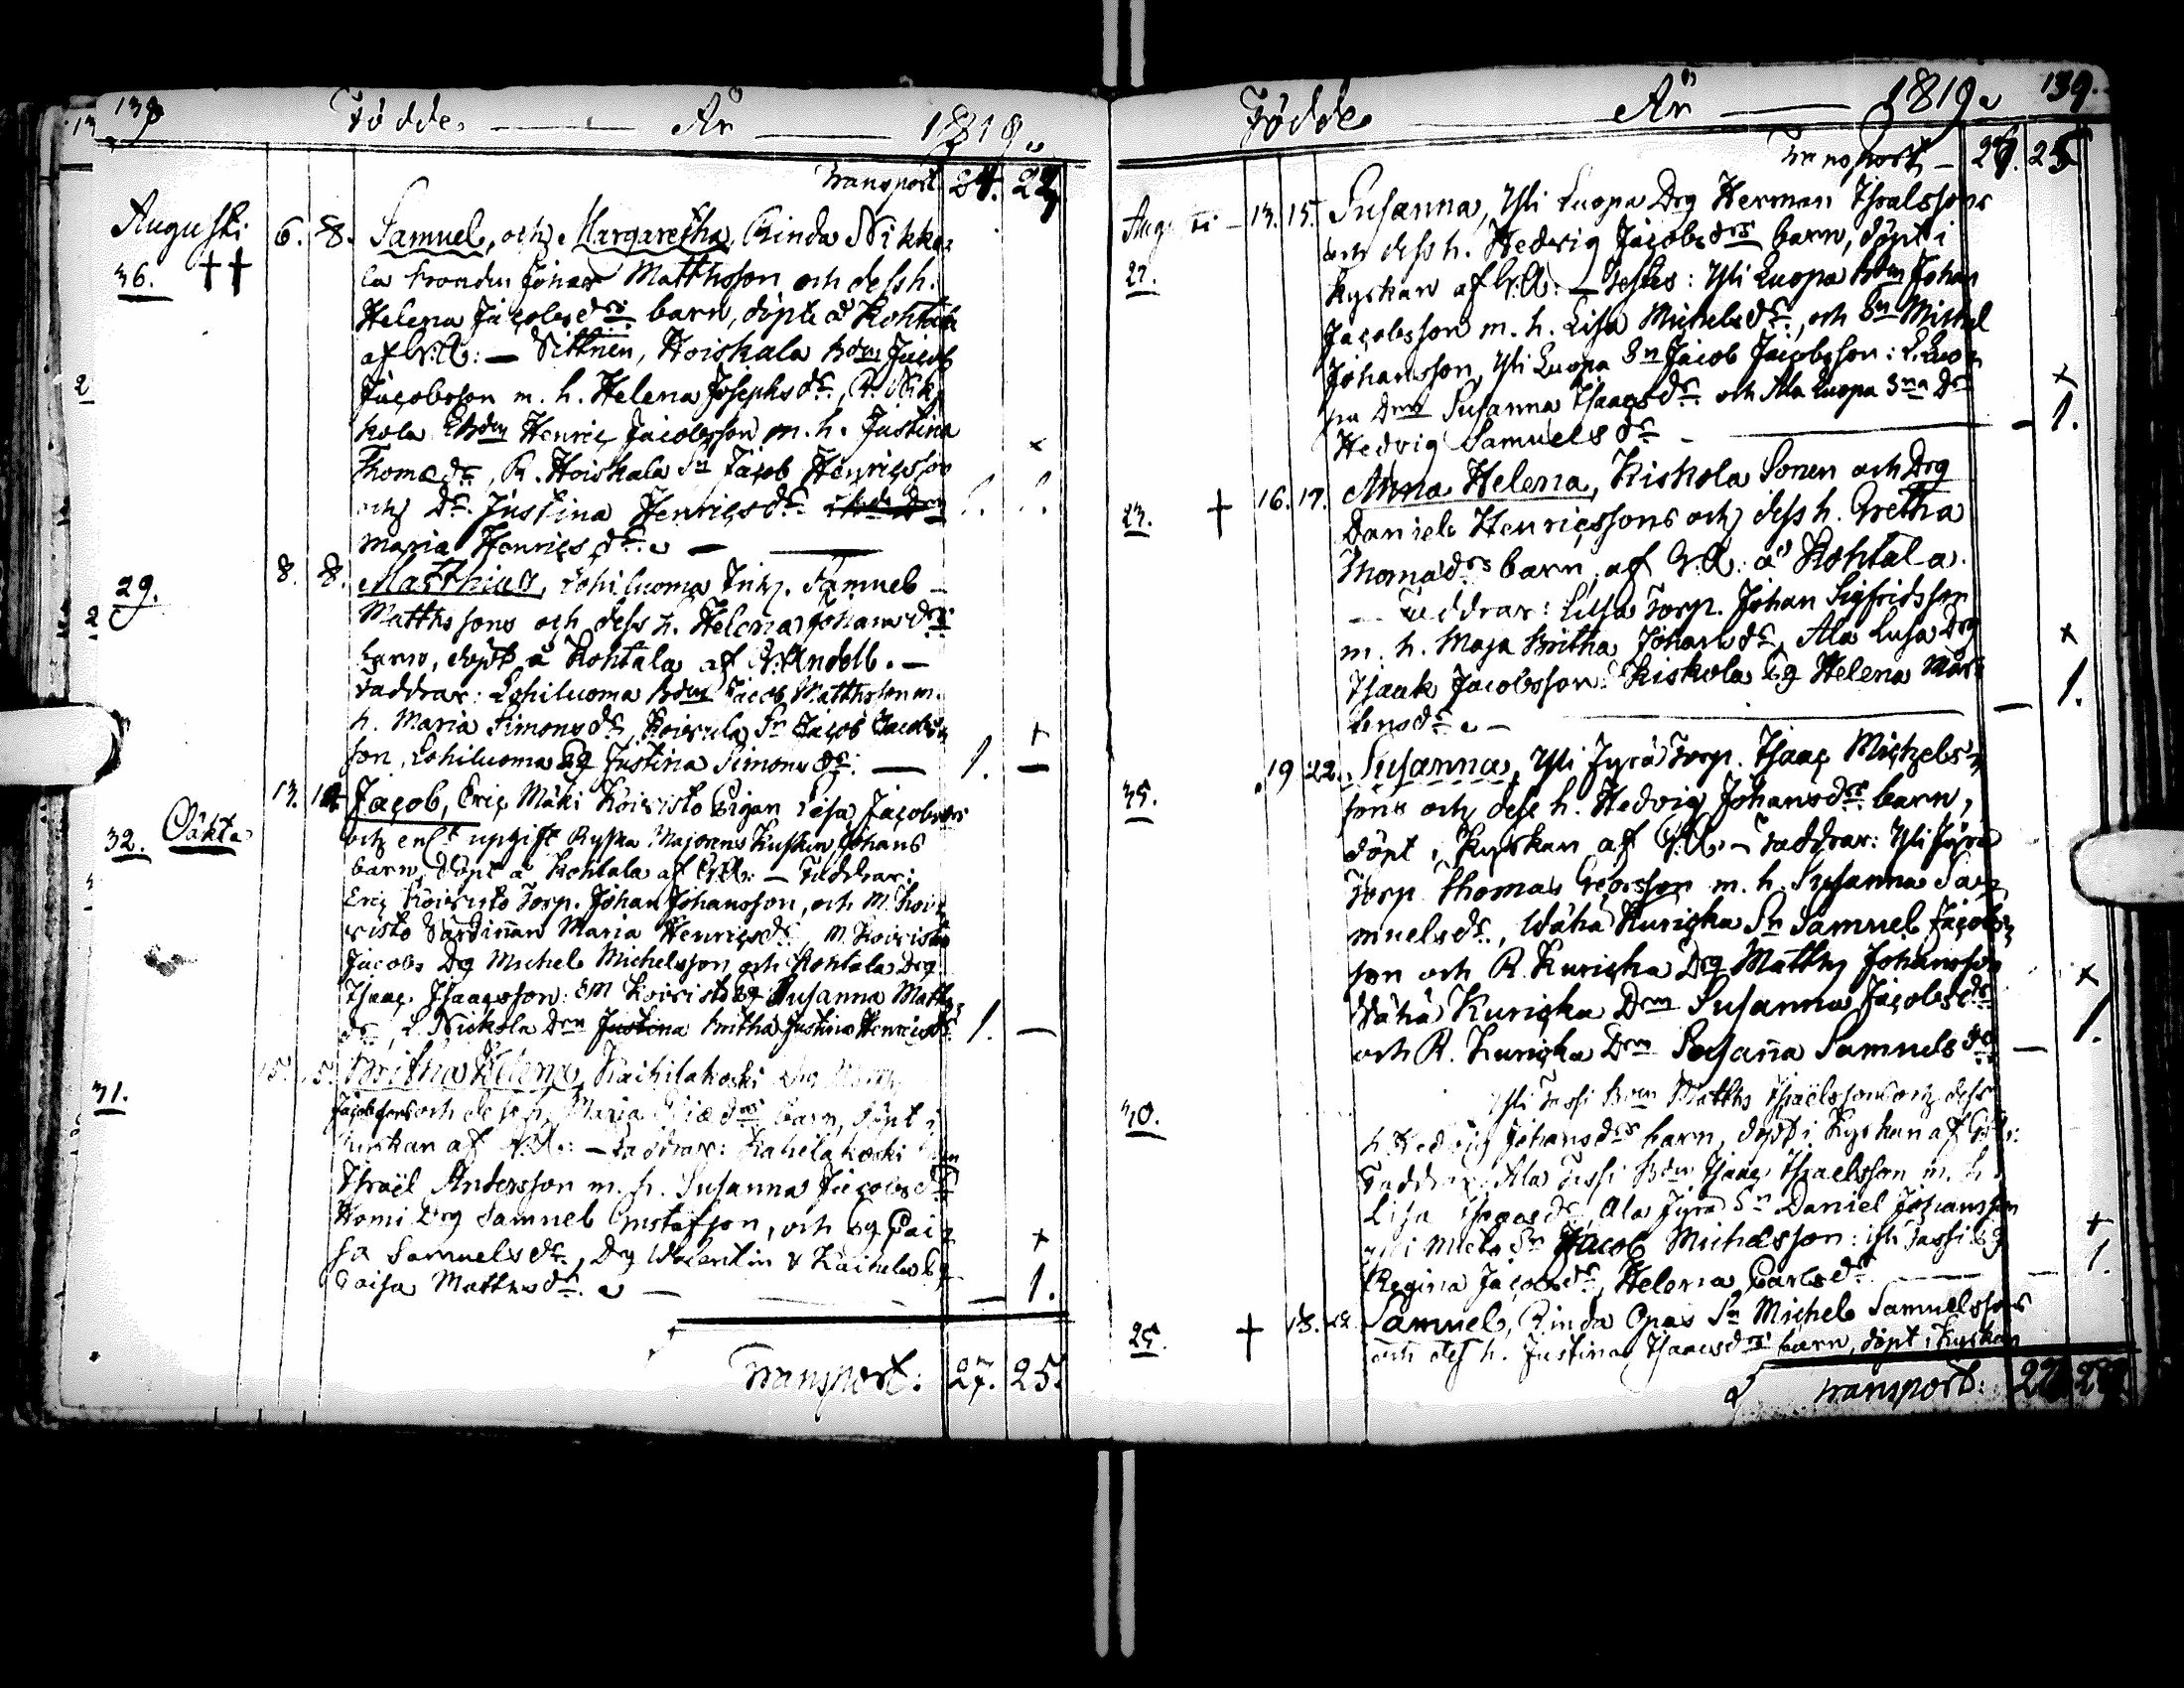 138 Födde År 1819.
Transport 24. 24
Augusti 6. 8. Samuel, och Margaretha, Rinda Nikko-
36. ++ la Johan Matthsson och dess h.
Helena Jacobsdrs barn, döpte å Kohtala
af V.A: — Vittnen, Hoiskala Bdn Jacob
Jacobsson m. h. Helena Josephsdr., R. Nik-
kola Bdn Henric Jacobsson m. h. Justina
Thomædr, R. Hoiskala Sn Jacob Henricsson ×
och Dr. Justina Henricsdr. 1. 1.
Maria Henricsdr. —
29. 8. 8. Matthias, Lohiluoma Inh. Samuel
Matthssons och dess h. Helena Johansdrs
barn, döpt å Kohtala af V. Andell. —
Faddrar: Lohiluoma Bdn Jacob Matthsson m.
h. Maria Simonsdr, Koivula Sn Jacob Jacobs- +
son, Lohiluoma Pg Justina Simonsdr: — 1. —
13. 14 Jacob, Eric Mäki Koivisto Pigan Lisa Jacobsdrs
32. Oäkta och enl upgift Ryska Majorens Kusken Johans
barn, döpt å Kohtala af V.A: — Faddrar:
Eric Koivisto Torp. Johan Johansson, och M. Koi-
visto Värdinnan Maria Henricsdr, M. Koivisto
Jacobs Dg Michel Michelsson och Kohtala Drg
Isaac Isaacsson: EM Koivisto Pg Susanna Matths
dr, L. Nickola Drn Justina Britha Justina Henricsdr 1. —
31. 15. 15. Britha Helena, Kaihilakoski
Jacobsons och dess h. Maria barn, döpt i
Kyrkan af V.A: — Faddrar: Kahilakoski
Israël Andersson m. h. Susanna Jacobsdr
Homi Drg Samuel Gustafson, och Pg Cai-
sa Samuelsdr, Dg Walentin & Pg +
Caisa Matthsdr. — — 1.
Transport: 27. 25.
Födde År 1819. 139.
Transport — 27. 25
Augusti 13. 15. Susanna, Yli Luopa Drg Herman Israelssons
och dess h. Hedvig Jacobsdrs barn, döpt i
27. Kyrkan af V.A: — Testes: Yli Luopa Bdn Johan
Jacobsson m. h. Lisa Michelsdr:, och Sn Michel
Johansson, Yli Luopa Sn Jacob Jacobsson: L. Luo-
pa Drn Susanna Isaacsdr: och Ala Luopa Sna Dr ×
Hedvig Samuelsdr — — 1.
23. + 16. 17. Anna Helena, Kiskola Sonen och Drg
Daniel Henricssons och dess h. Gretha
Thomadrs barn, af V.A: å Kohtala.
— Faddrar: Torp. Johan Sigfridsson
m. h. Maja Britha Johansdr, Ala Drg ×
Isaak Jacobsson: Kiskola Pg Helena Mår-
tensdr. — — 1.
35. 19 22. Susanna, Yli Jyrä Torp. Isaac Michels-
sons och dess h. Hedvig Johansdrs barn,
döpt i Kyrkan af V.A. — Faddrar: Yli Jyrä
Torp Thomas Georsson m. h. Susanna Sa-
muelsdr., Wähä Kuricka Sn Samuel Jacobs-
son och R. Kuricka Drg Matths Johansson ×
Wähä Kuricka Drn Susanna Jacobsdr
och R. Kuricka Drn Susanna Samuelsdr — 1.
30. Yli Jassi Bdn Matths Israëlssons och dess
h. Hedvig Johansdrs barn, döpt i Kyrkan af
Faddrar: Ala Jassi Bdn Isaac Israelsson m. h.
Lisa Isaacsdr, Ala Jyrä Sn Daniel Johansson
Yli Sn Jacob Michelsson: Yli Jassi Pg +
Regina Jacobsdr, Helena Carlsdr — — 1.
25. + 18. 22. Samuel, Rinda Opas Sn Michel Samuelssons
och dess h. Justina Isaacsdrs barn, döpt i Kyrkan
Transport: 27 29